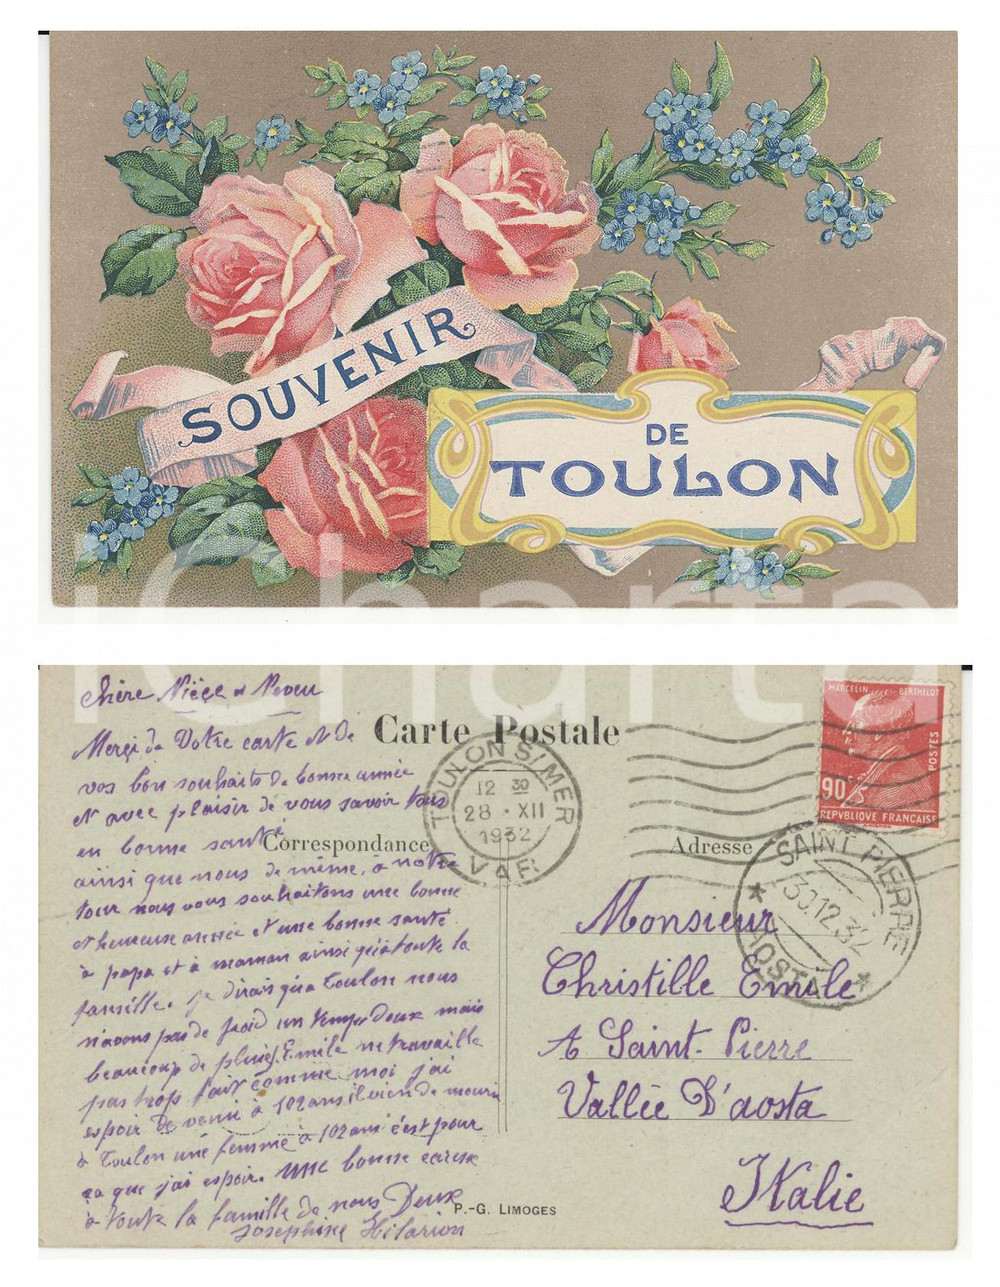 SOUVENIR
DE
TOULON
iCharta
Chère Nièçe et Neveu
Merçi de Votre carte et de
vos bon souhaits de bonne année
et avec plaisir de vous savoir tous
en bonne santé
ainsi que nous de même, à notre
tour nous vous souhaitons une bonne
et heureuse année et une bonne santé
à papa et à maman ainsi qu'à toute la
famille. je dirais qu'a Toulon nous
n'avons pas de froid un temps doux mais
beaucoup de pluie. Emile ne travaille
pas trop fair comme moi j'ai
espoir de venir à 102 ans il vien de mourir
à Toulon une femme à 102 ans c'est pour
ça que j'ai espoir. une bonne caresse
à toute la famille de nous Deux
Josephine Hilarion
Carte Postale
Correspondance
Adresse
TOULON S/MER
12 30
28 · XII
1932
VAR
MARCELIN BERTHELOT
POSTES
90c
REPVBLIQVE FRANCAISE
SAINT PIERRE
30.12.32
AOSTA
Monsieur
Christille Emile
A Saint-Pierre
Vallée D'aosta
Italie
P.-G. LIMOGES